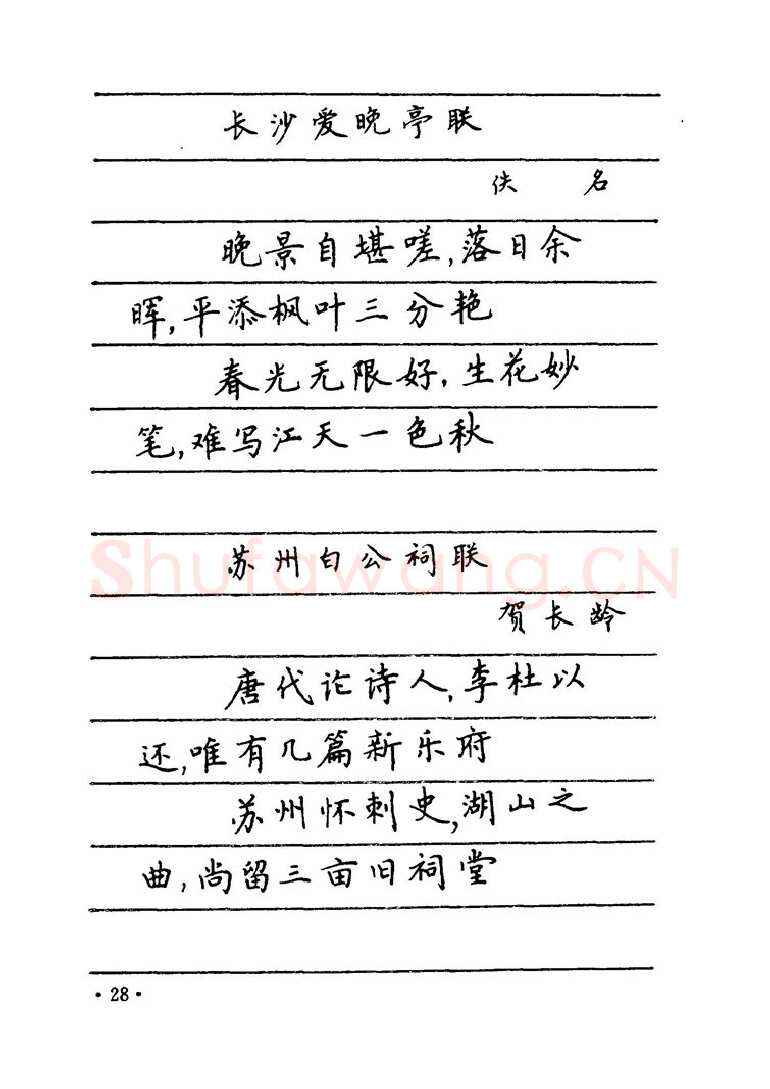 长沙爱晚亭联
佚 名
晚景自堪嗟,落日余
晖,平添枫叶三分艳
春光无限好,生花妙
笔,难写江天一色秋
苏州白公祠联
Shufawang.CN
贺长龄
唐代论诗人,李杜以
还,唯有几篇新乐府
苏州怀刺史,湖山之
曲,尚留三亩旧祠堂
·28·